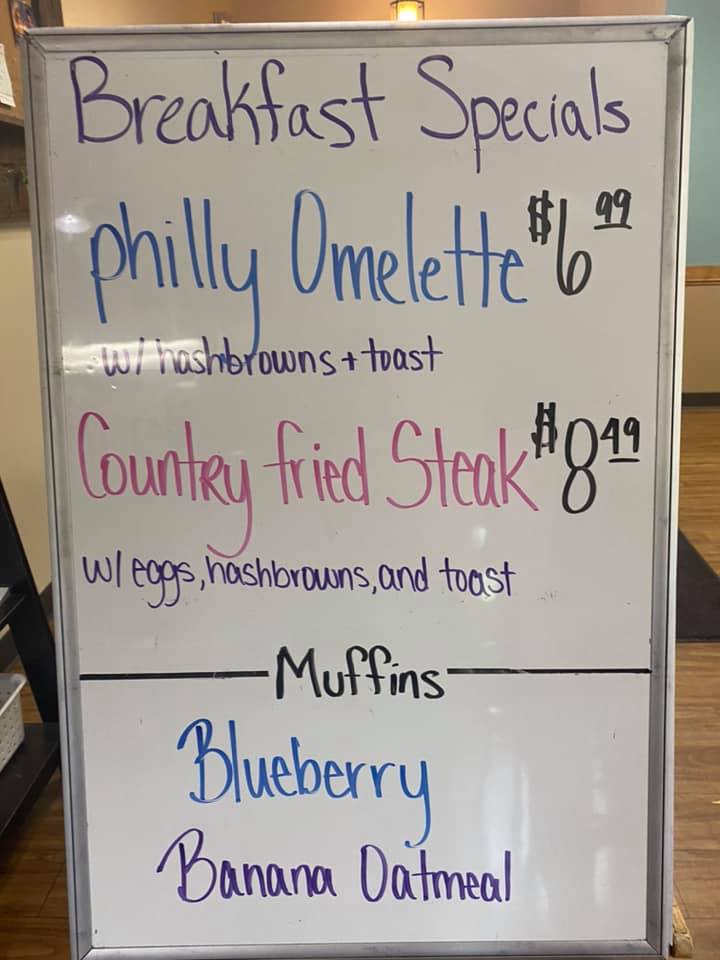 Breakfast Specials
philly Omelette $6 99
w/ hashbrowns + toast
Country fried Steak $8 49
w/ eggs, hashbrowns, and toast
Muffins
Blueberry
Banana Oatmeal